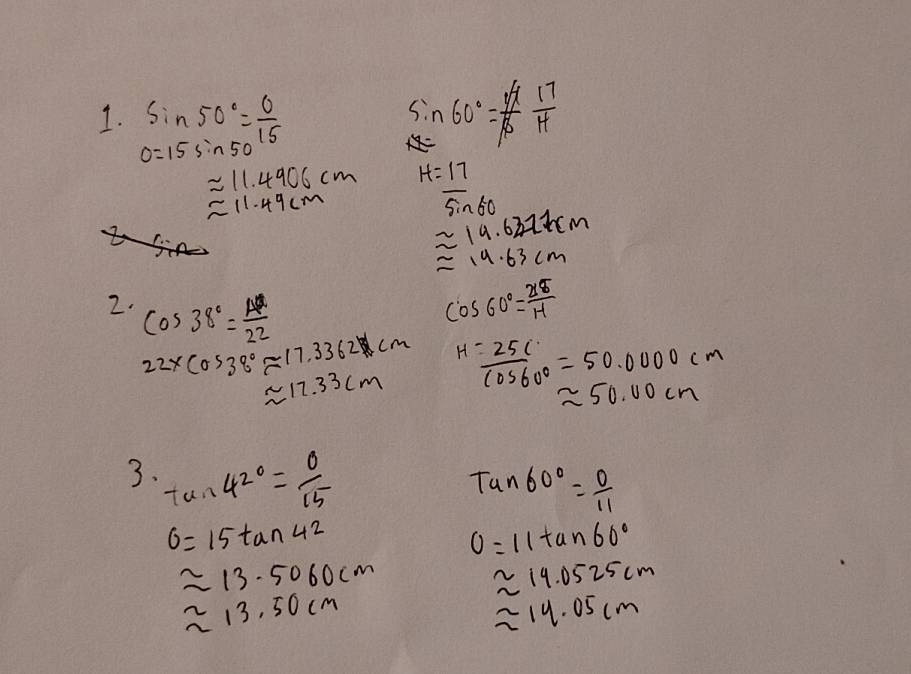 1. Sin 50° = O/15
O = 15 sin 50
≈ 11.4906 cm
≈ 11.49 cm
Sin 60° = 17/H
H = 17/Sin 60
≈ 19.63 cm
2. Cos 38° = A/22
22 × Cos 38° ≈ 17.3362 cm
≈ 17.33 cm
Cos 60° = 25/H
H = 25/Cos 60° = 50.0000 cm
≈ 50.00 cm
3. tan 42° = O/15
O = 15 tan 42
≈ 13.5060 cm
≈ 13.50 cm
Tan 60° = O/11
O = 11 tan 60°
≈ 19.0525 cm
≈ 19.05 cm